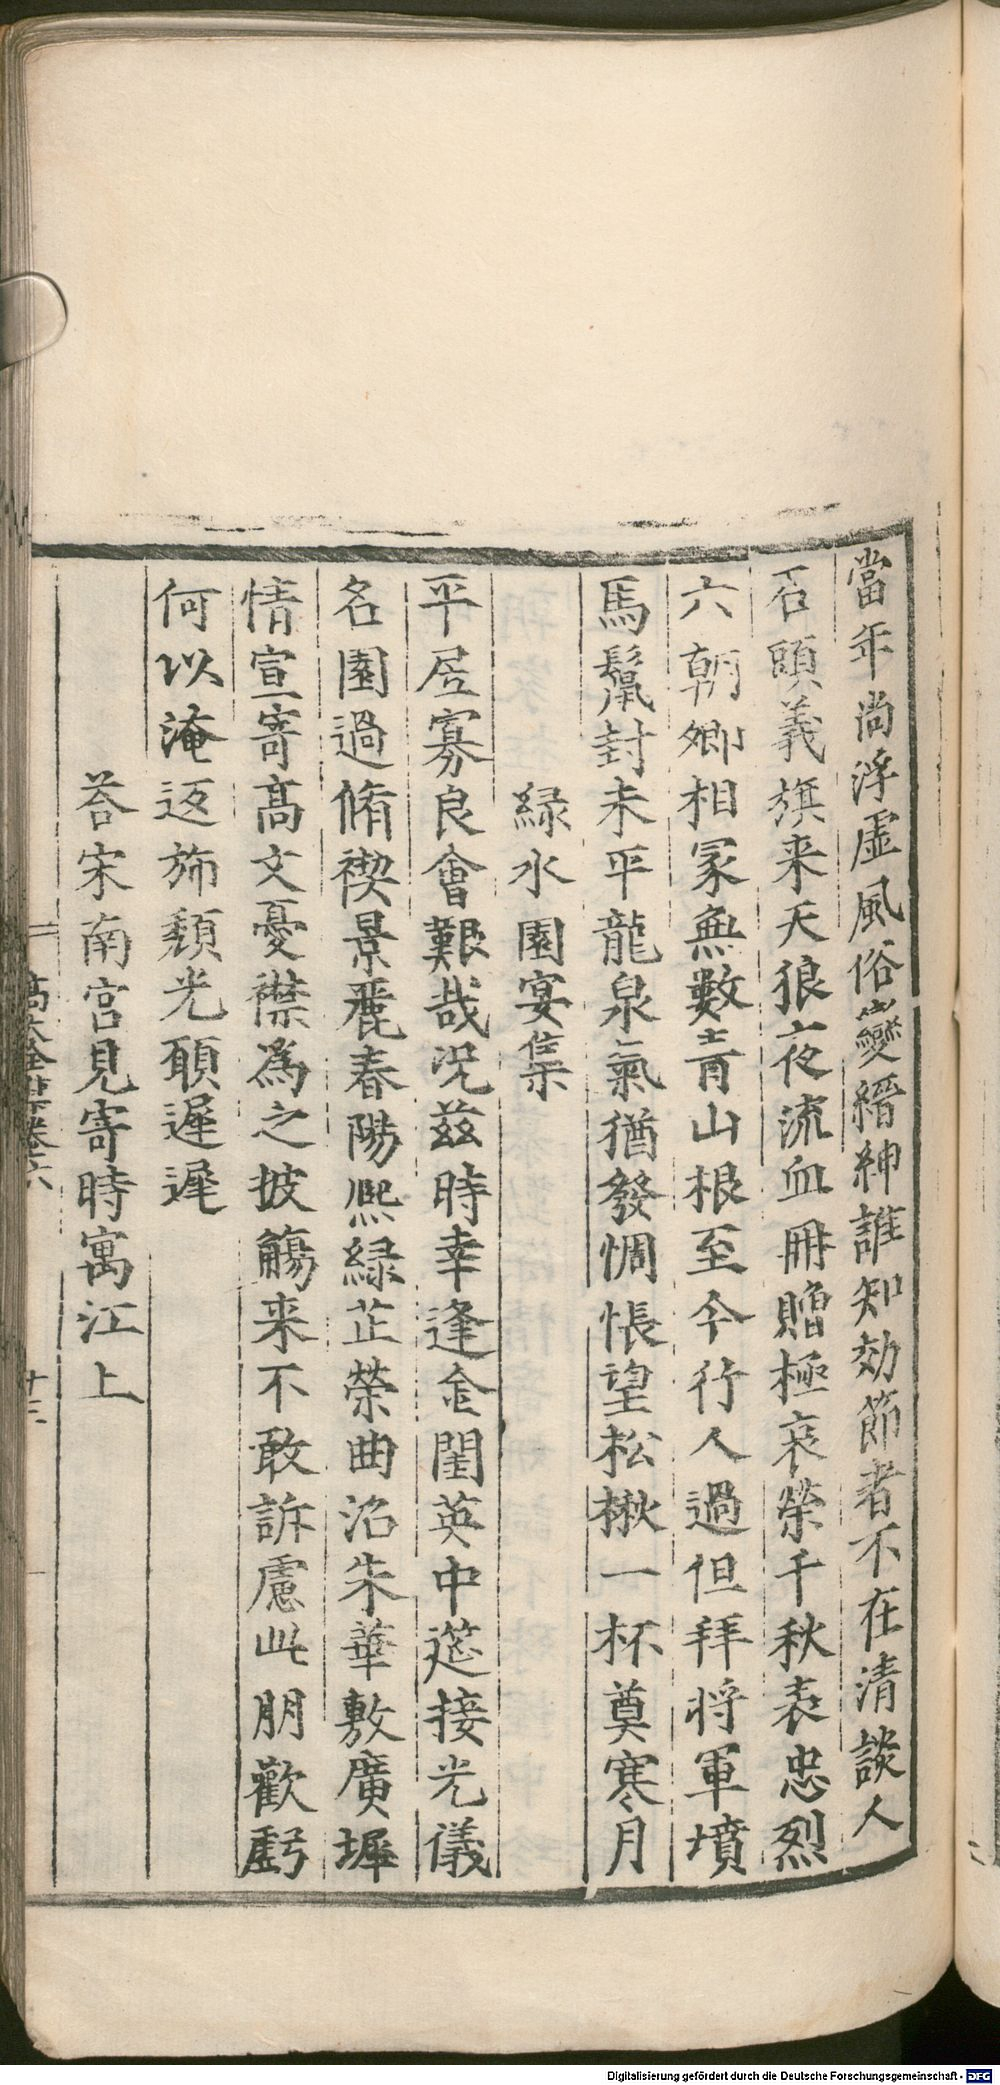 當年尚浮虛風俗變縉紳誰知効節者不在清談人
石頭義旗来天狼夜流血冊贈極哀榮千秋表忠烈
六朝卿相冢無數青山根至今行人過但拜将軍墳
馬鬛封未平龍泉氣猶發惆悵望松楸一杯奠寒月
緑水園宴集
平居寡良會艱哉况茲時幸逢金閨英中筵接光儀
名園過脩禊景麗春陽熈緑芷榮曲沼朱華敷廣墀
情宣寄高文憂襟為之披觴来不敢訴慮此朋歡虧
何以淹返斾頹光願遲遲
荅宋南宫見寄時寓江上
高太全集卷六
十三
Digitalisierung gefördert durch die Deutsche Forschungsgemeinschaft - DFG